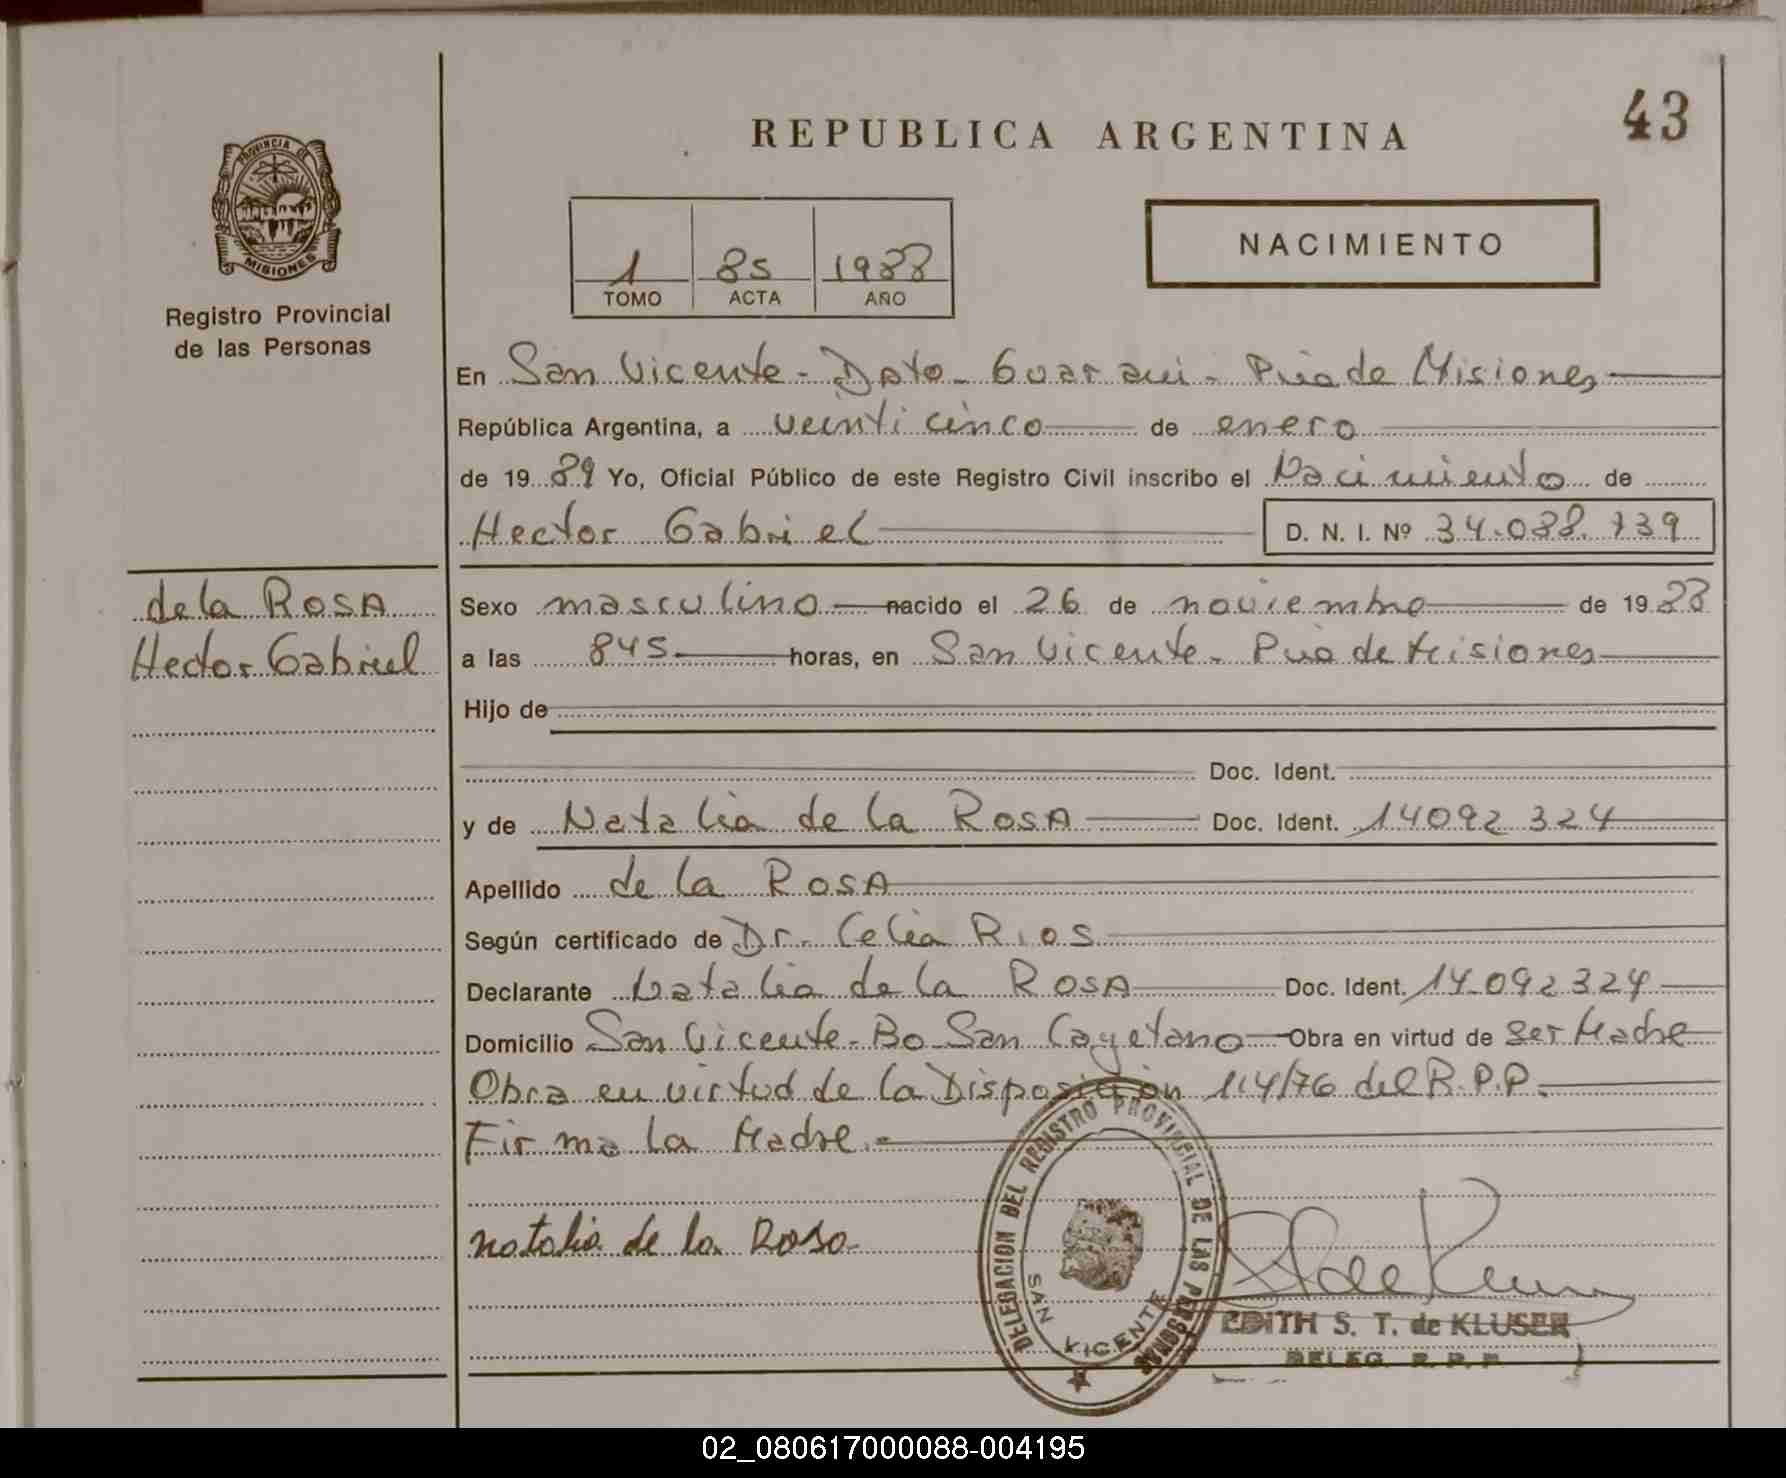 43
REPUBLICA ARGENTINA
PROVINCIA DE
MISIONES
Registro Provincial
de las Personas
1 85 1988
TOMO ACTA AÑO
NACIMIENTO
En San Vicente - Dpto - Guarani - Pcia de Misiones
República Argentina, a veinticinco de enero
de 1989 Yo, Oficial Público de este Registro Civil inscribo el Nacimiento de
Hector Gabriel D. N. I. Nº 34.088.739
de la ROSA
Hector Gabriel
Sexo masculino nacido el 26 de noviembre de 1988
a las 845 horas, en San Vicente - Pcia de Misiones
Hijo de
Doc. Ident.
y de Natalia de la ROSA Doc. Ident. 14092324
Apellido de la ROSA
Según certificado de Dr. Celia Rios
Declarante Natalia de la ROSA Doc. Ident. 14.092324
Domicilio San Vicente - Bo San Cayetano Obra en virtud de ser Madre
Obra en virtud de la Disposición 114/76 del R.P.P.
Firma la Madre.
natalia de la Rosa
DELEGACION DEL REGISTRO PROVINCIAL DE LAS PERSONAS
SAN VICENTE
EDITH S. T. de KLUSER
DELEG. R. P. P.
02_080617000088-004195